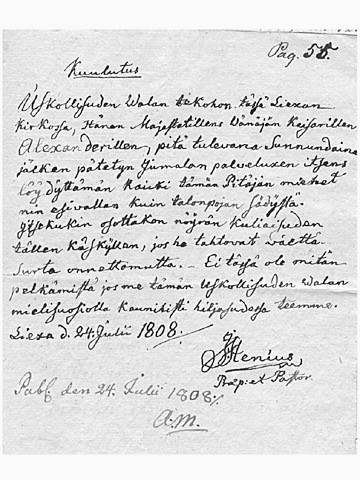 Pag. 55.
Kuulutus
Uskollisuden Walan tekohon tässä Liezan
kirkossa, Hänen Majestetillens Wänäjän Keisarillen
Alexanderillen, pitä tulevana Sunnundaina
jälken pätetyn Jumalan palveluxen itsens
löydyttämän kaicki tämän Pitäjän miehet
nin esivallan kuin talonpojan Sädystä.
Itsekukin osottakon nöyrän kuliaisuden
tällen käskyllen, jos he tahtovat wälttä
Surta onnettomutta. – Ei tässä ole mitän
pelkämistä jos me tämän Uskollisuden walan
mielisuosiolla kaunihisti hiljasudessa teemme.
Lieza d. 24 Julii 1808.
Henius
Præp: et Pastor.
Publ. den 24. Julii 1808
A.M.